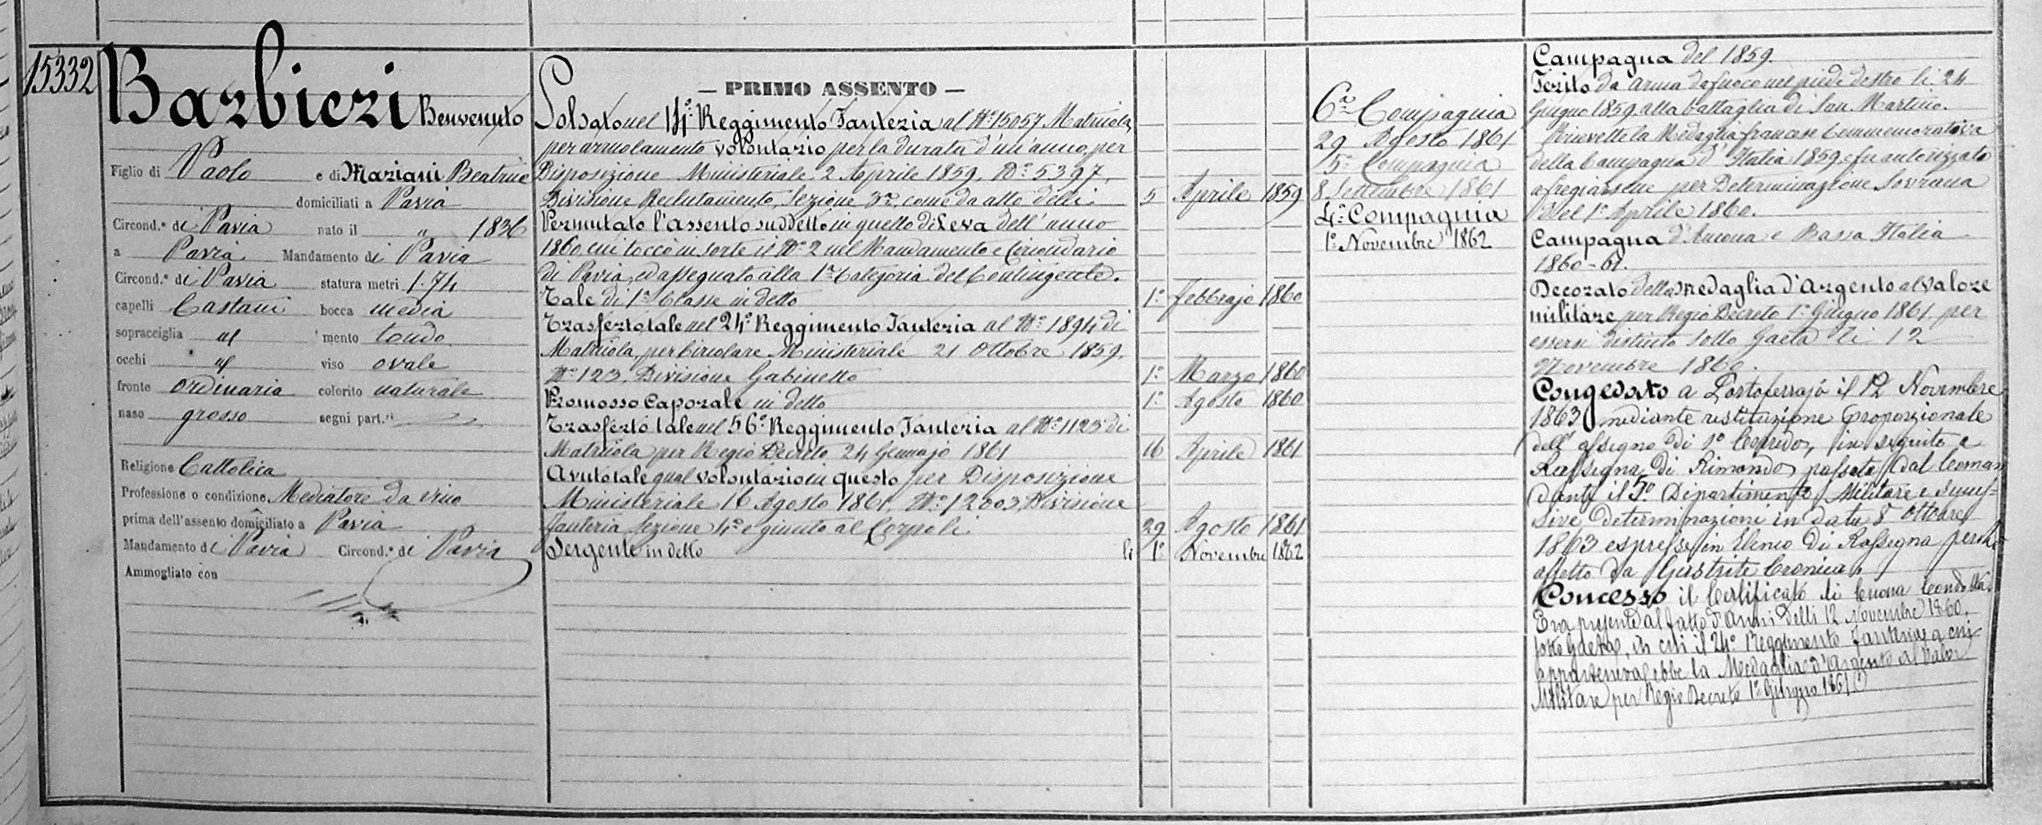 15332
Barbieri Benvenuto
Figlio di Paolo e di Mariani Beatrice
domiciliati a Pavia
Circond.º di Pavia nato il " 1836
a Pavia Mandamento di Pavia
Circond.º di Pavia statura metri 1.74
capelli Castani bocca media
sopracciglia id mento tondo
occhi id viso ovale
fronte ordinaria colorito naturale
naso grosso segni part.ri
Religione Cattolica
Professione o condizione Mediatore da vino
prima dell'assento domiciliato a Pavia
Mandamento di Pavia Circond.º di Pavia
Ammogliato con
— PRIMO ASSENTO —
Soldato nel Reggimento Fanteria al Nº 15057 Matricola
per arruolamento volontario per la durata d'un anno, per
Disposizione Ministeriale 2 Aprile 1859, Nº 5397,
Divisione Reclutamento, Sezione 3ª, come da atto delli 5 Aprile 1859
Permutato l'assento suddetto in quello di Leva dell'anno
1860 cui toccò in sorte il Nº 2 nel Mandamento e Circondario
di Pavia, ed assegnato alla 1ª Categoria del Contingente.
Tale di 1ª Classe in detto 1º Febbrajo 1860
Trasferto tale nel 24º Reggimento Fanteria al Nº 1894 di
Matricola, per Circolare Ministeriale 21 Ottobre 1859,
Nº 123, Divisione Gabinetto 1º Marzo 1860
Promosso Caporale in detto 1º Agosto 1860
Trasferto tale nel 56º Reggimento Fanteria al Nº 1123 di
Matricola per Regio Decreto 24 Gennajo 1861 16 Aprile 1861
Avuto tale qual volontario in questo per Disposizione
Ministeriale 16 Agosto 1861, Nº 12003, Divisione
Fanteria Sezione 4ª e giunto al Corpo li 29 Agosto 1861
Sergente in detto li 1º Novembre 1862
6ª Compagnia
29 Agosto 1861
5ª Compagnia
8 Settembre 1861
4ª Compagnia
1º Novembre 1862
Campagna del 1859.
Ferito da arma da fuoco nel piede destro li 24
Giugno 1859 alla battaglia di San Martino.
Ricevette la Medaglia francese Commemorativa
della Campagna d'Italia 1859, e fu autorizzato
a fregiarsene per Determinazione Sovrana
del 1º Aprile 1860.
Campagna d'Ancona e Bassa Italia
1860-61.
Decorato della Medaglia d'Argento al Valore
militare per Regio Decreto 1º Giugno 1861 per
essersi distinto sotto Gaeta li 12
Novembre 1860.
Congedato a Portoferrajo il 12 Novembre
1863 mediante restituzione proporzionale
dell'assegno di 1º Corredo, in seguito a
Rassegna di Rimando passata dal Coman
dante il 5º Dipartimento Militare e succes-
sive determinazioni in data 8 Ottobre
1863 espresse in Elenco di Rassegna perchè
affetto da Gastrite Cronica.
Concesso il Certificato di buona condotta.
Era presente al fatto d'Armi delli 12 Novembre 1860.
sotto Gaeta, in cui il 24º Reggimento Fanteria a cui
apparteneva ebbe la Medaglia d'Argento al Valor
Militare per Regio Decreto 1º Giugno 1861